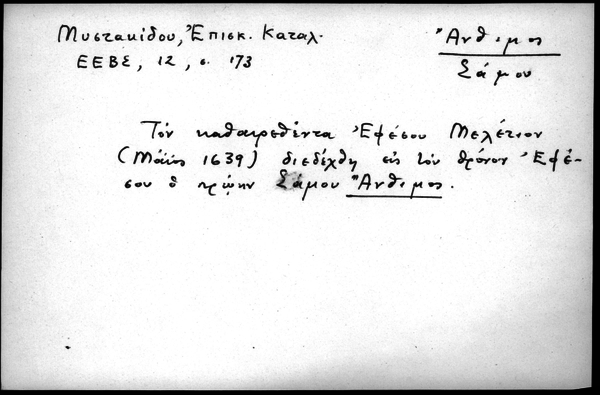 Μυστακίδου, Ἐπισκ. Καταλ.
ΕΕΒΣ, 12, σ. 173
Ἄνθιμος
Σάμου
Τὸν καθαιρεθέντα Ἐφέσου Μελέτιον
(Μάϊος 1639) διεδέχθη εἰς τὸν θρόνον Ἐφέ-
σου ὁ πρῴην Σάμου Ἄνθιμος.